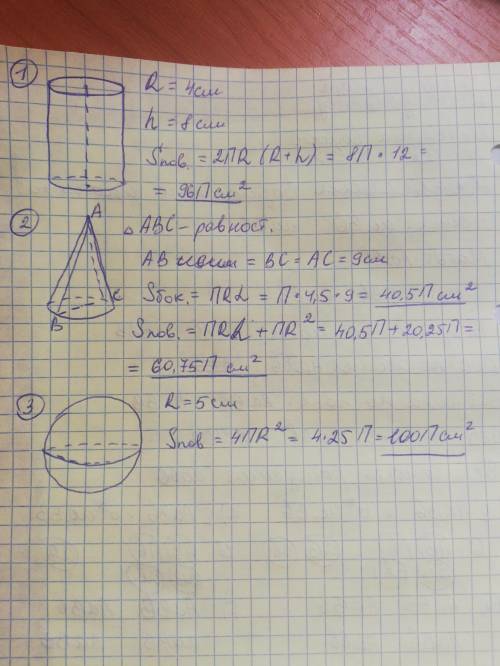 ① R = 4см
h = 8см
Sпов. = 2ПR (R+h) = 8П • 12 =
= 96П см²
② A
△ABC – равност.
AB = BC = AC = 9см
Sбок. = ПRL = П • 4,5 • 9 = 40,5П см²
B C
Sпов. = ПRL + ПR² = 40,5П + 20,25П =
= 60,75П см²
③ R = 5см
Sпов = 4ПR² = 4•25П = 100П см²